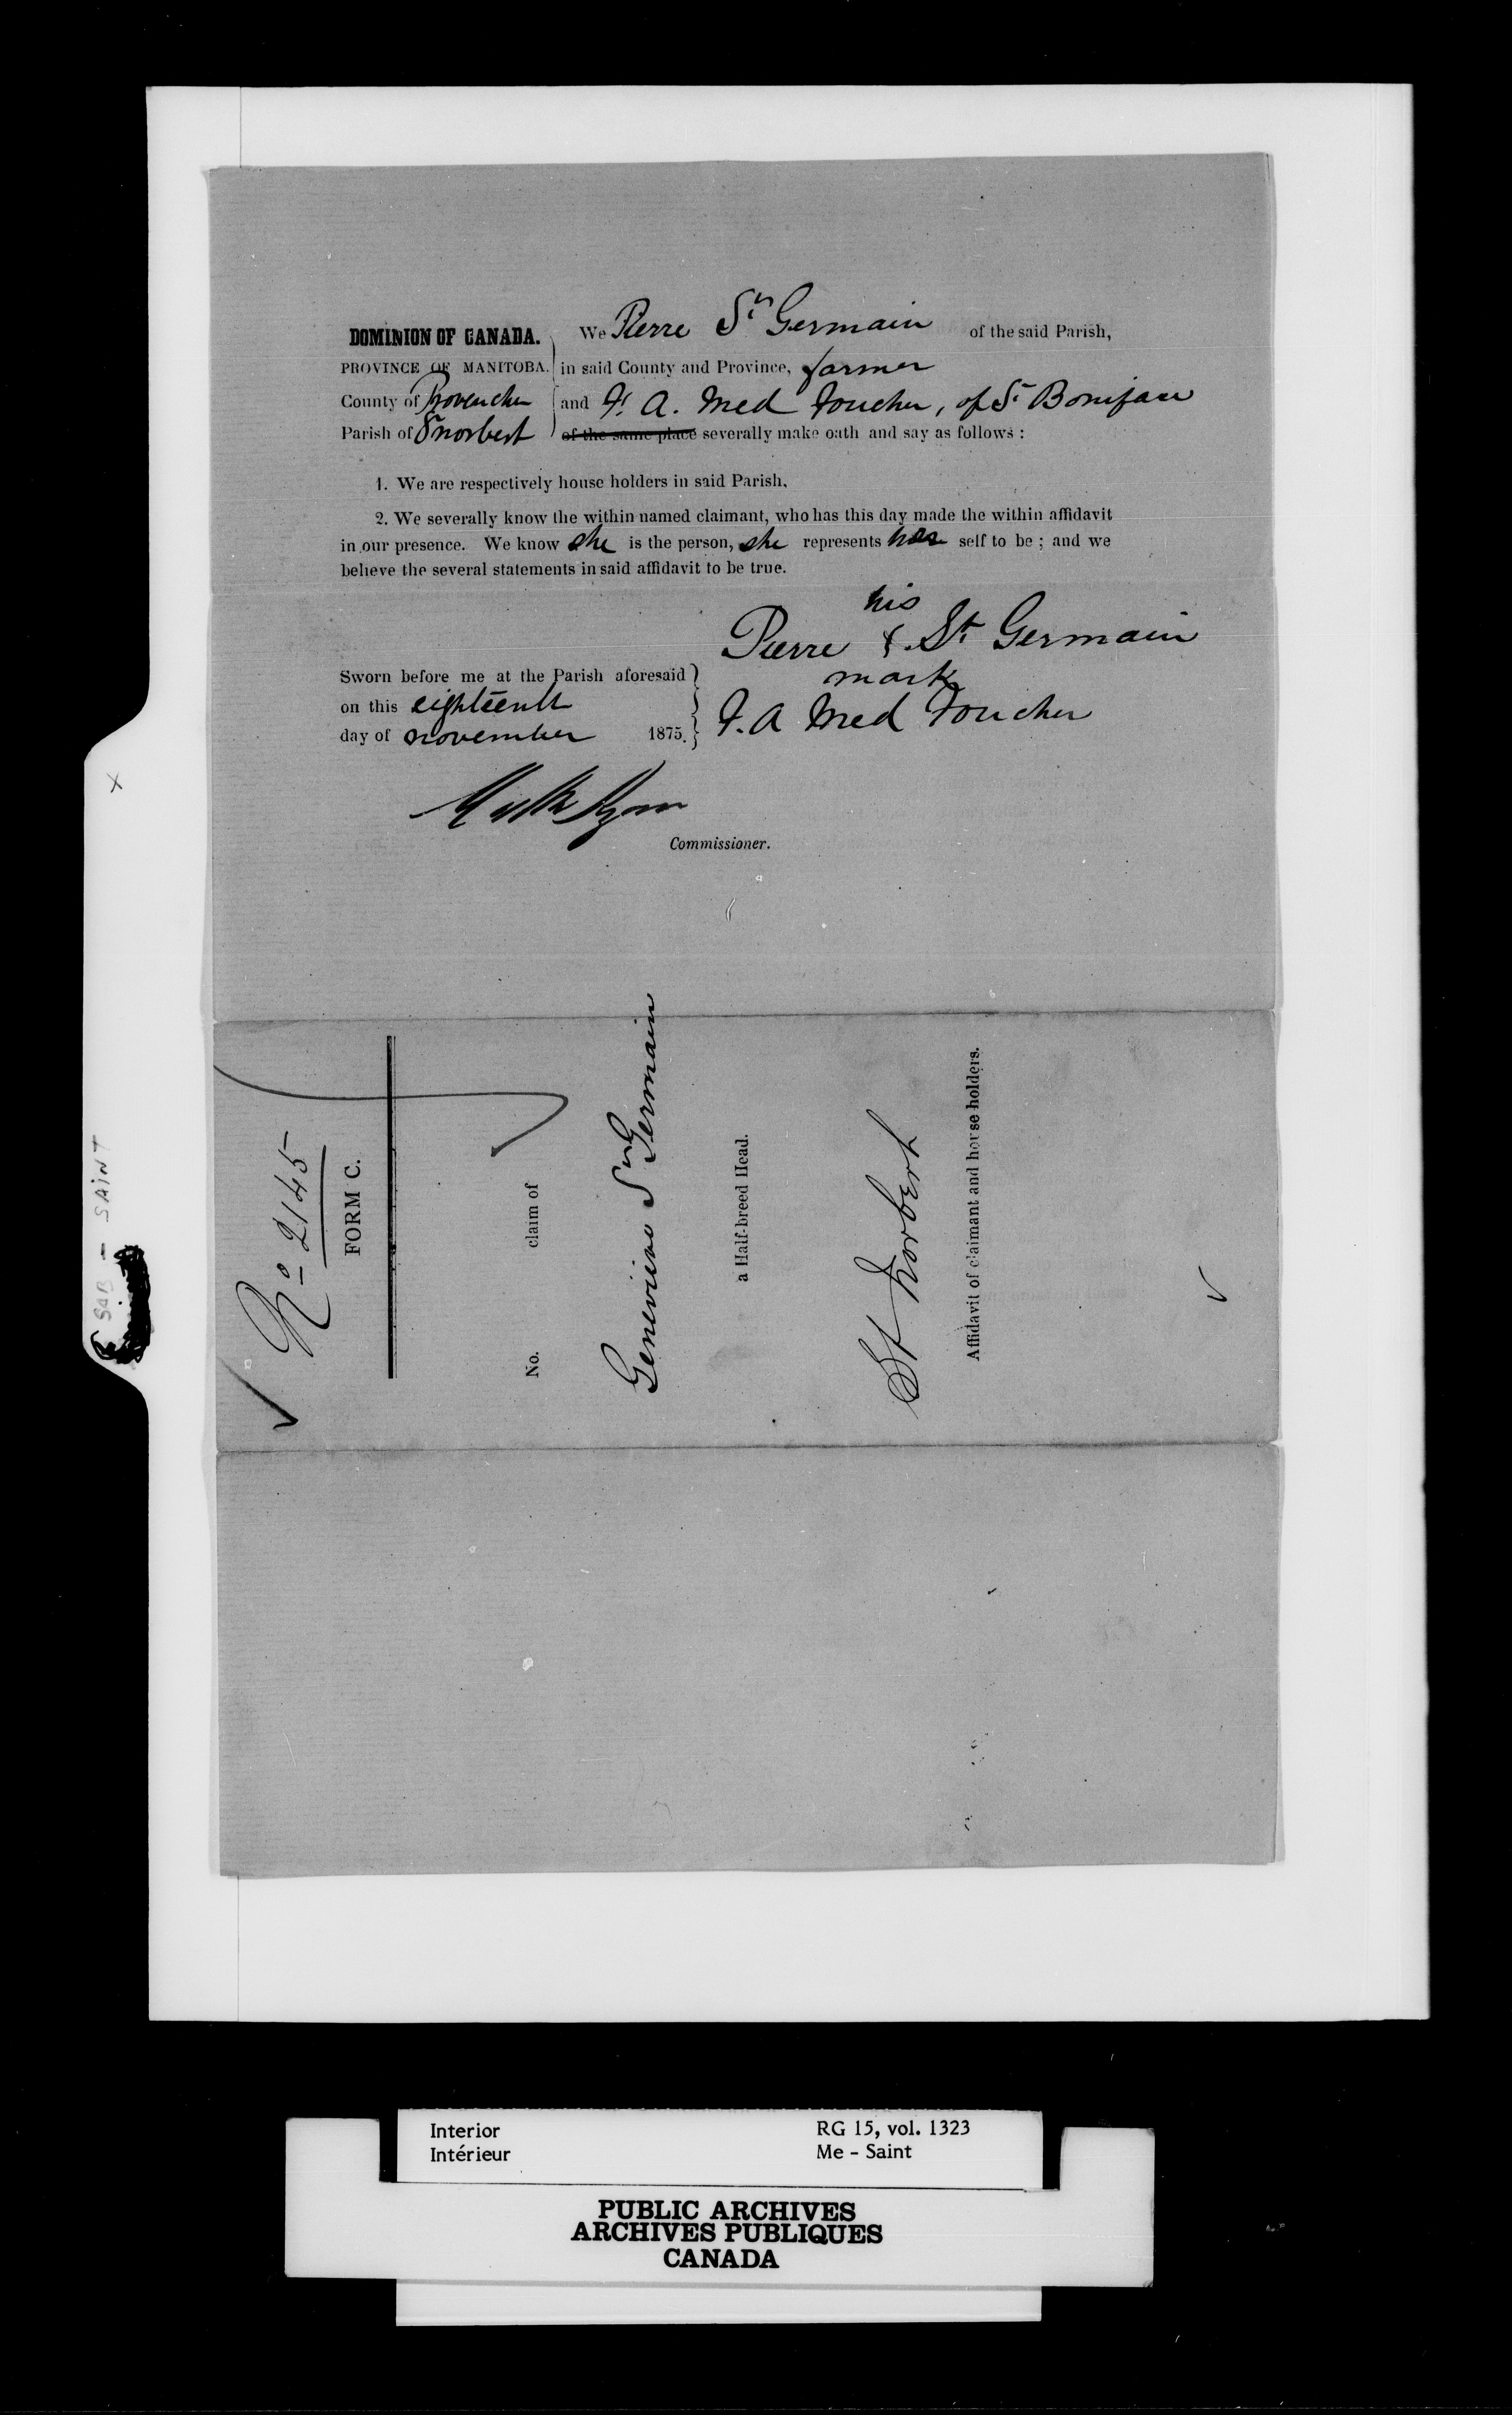 DOMINION OF CANADA. We Pierre St Germain of the said Parish,
PROVINCE OF MANITOBA. in said County and Province, farmer
County of Provencher and F. A. Med Foucher, of St Boniface
Parish of St norbert of the same place severally make oath and say as follows :
1. We are respectively house holders in said Parish.
2. We severally know the within named claimant, who has this day made the within affidavit
in our presence. We know she is the person, she represents her self to be ; and we
believe the several statements in said affidavit to be true.
his
Pierre X St Germain
mark
Sworn before me at the Parish aforesaid
on this eighteenth
day of november 1875.
F. A Med Foucher
Commissioner.
No 2145
FORM C.
No. claim of
Genevieve St Germain
a Half-breed Head.
St Norbert
Affidavit of claimant and house holders.
SAB - SAINT
X
Interior RG 15, vol. 1323
Intérieur Me - Saint
PUBLIC ARCHIVES
ARCHIVES PUBLIQUES
CANADA